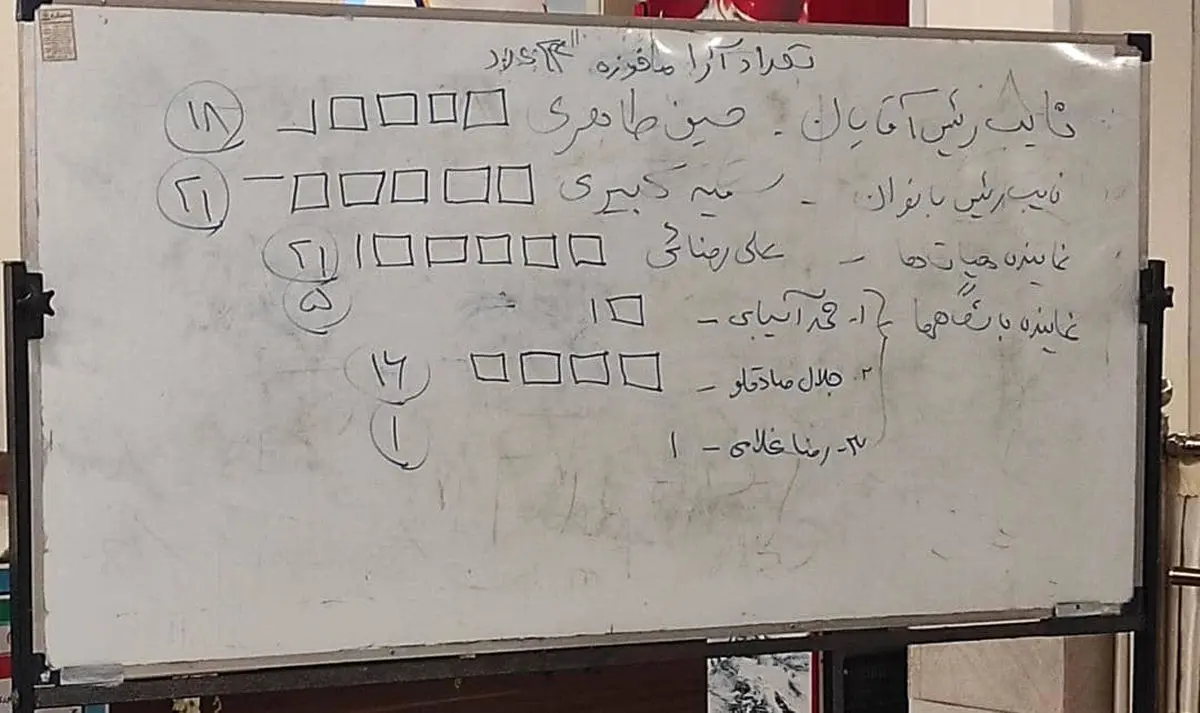 تعداد آرا مأخوزه "۲۴" عدد
نائب رئیس آقایان - حسین طاهری ۱۸
نایب رئیس بانوان - سمیه کبیری ۲۱
نماینده هیات ها - علی رضائی ۲۱
نماینده باشگاهها ۱- محمد آسیابی - ۱ ۵
۲- جلال صادقلو - ۱۶
۳- رضا غلامی - ۱ ۱